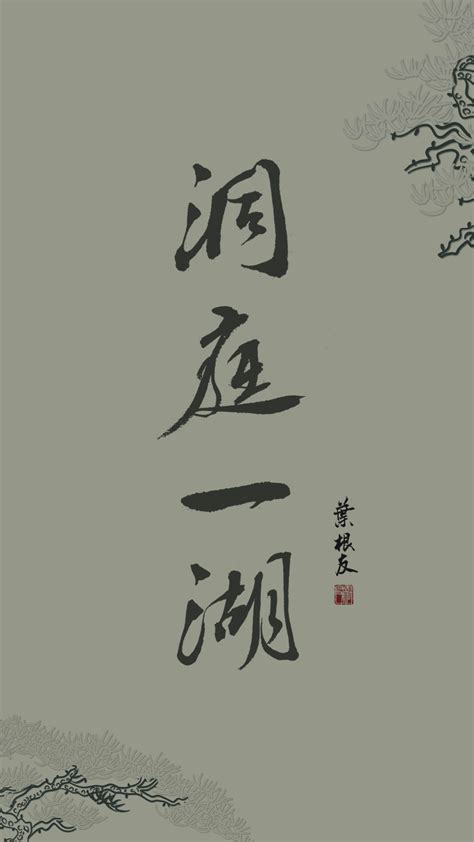 洞庭一湖
葉根友